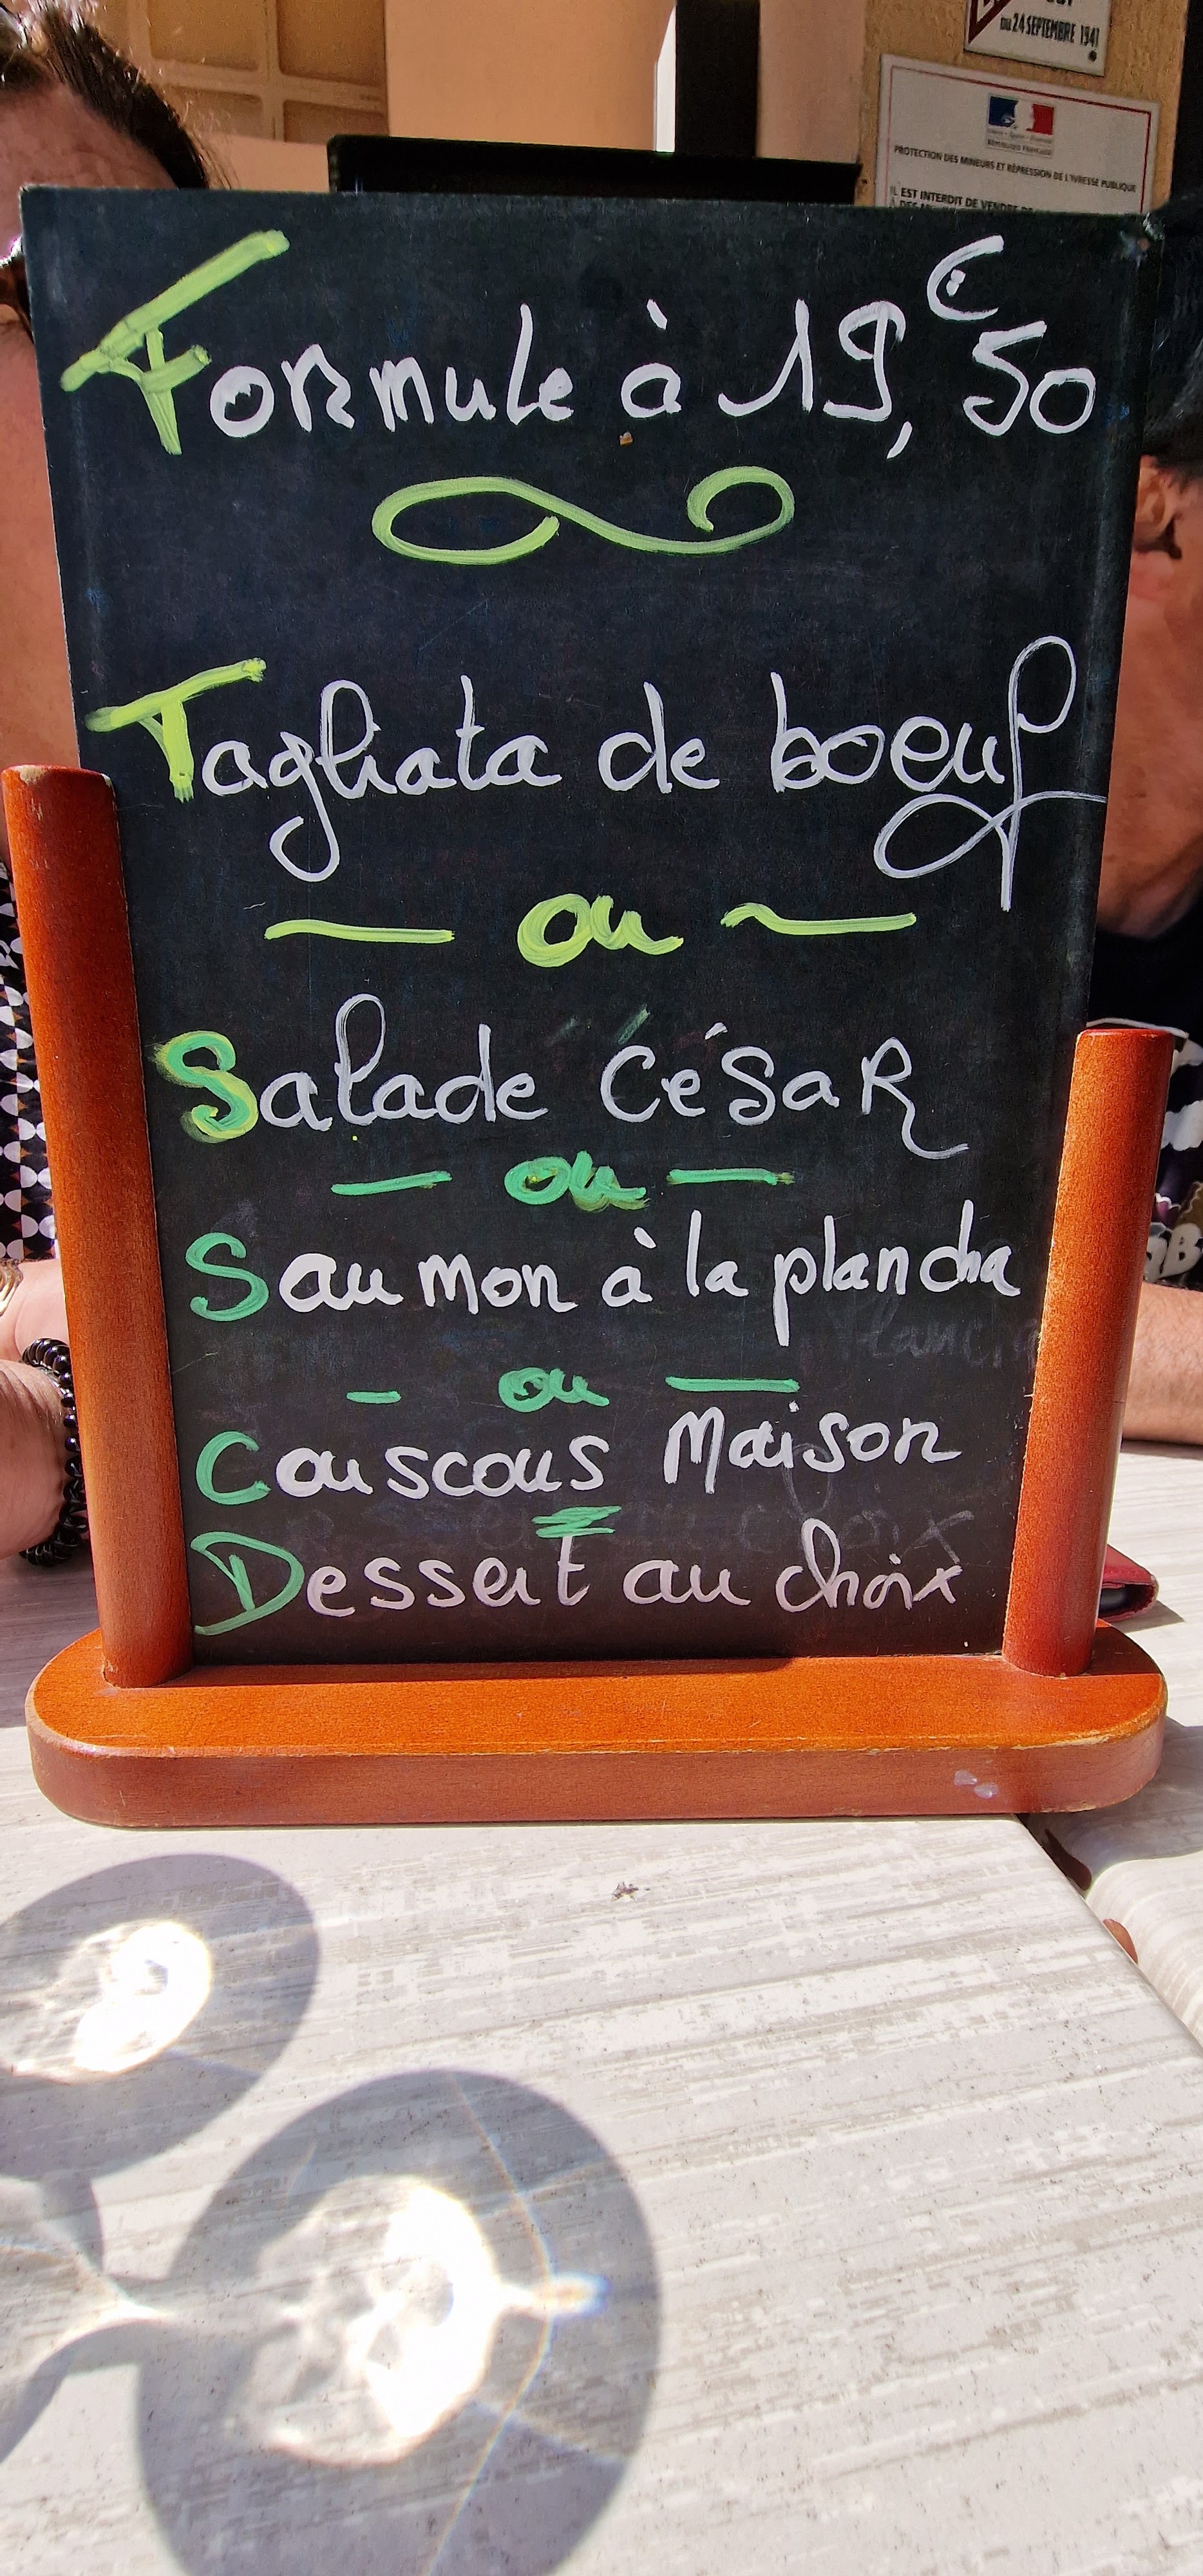 DU 24 SEPTEMBRE 1941
RÉPUBLIQUE FRANÇAISE
PROTECTION DES MINEURS ET RÉPRESSION DE L'IVRESSE PUBLIQUE
IL EST INTERDIT DE VENDRE
Formule à 19,€50
Tagliata de boeuf
ou
Salade César
ou
Saumon à la plancha
ou
Couscous Maison
Dessert au choix